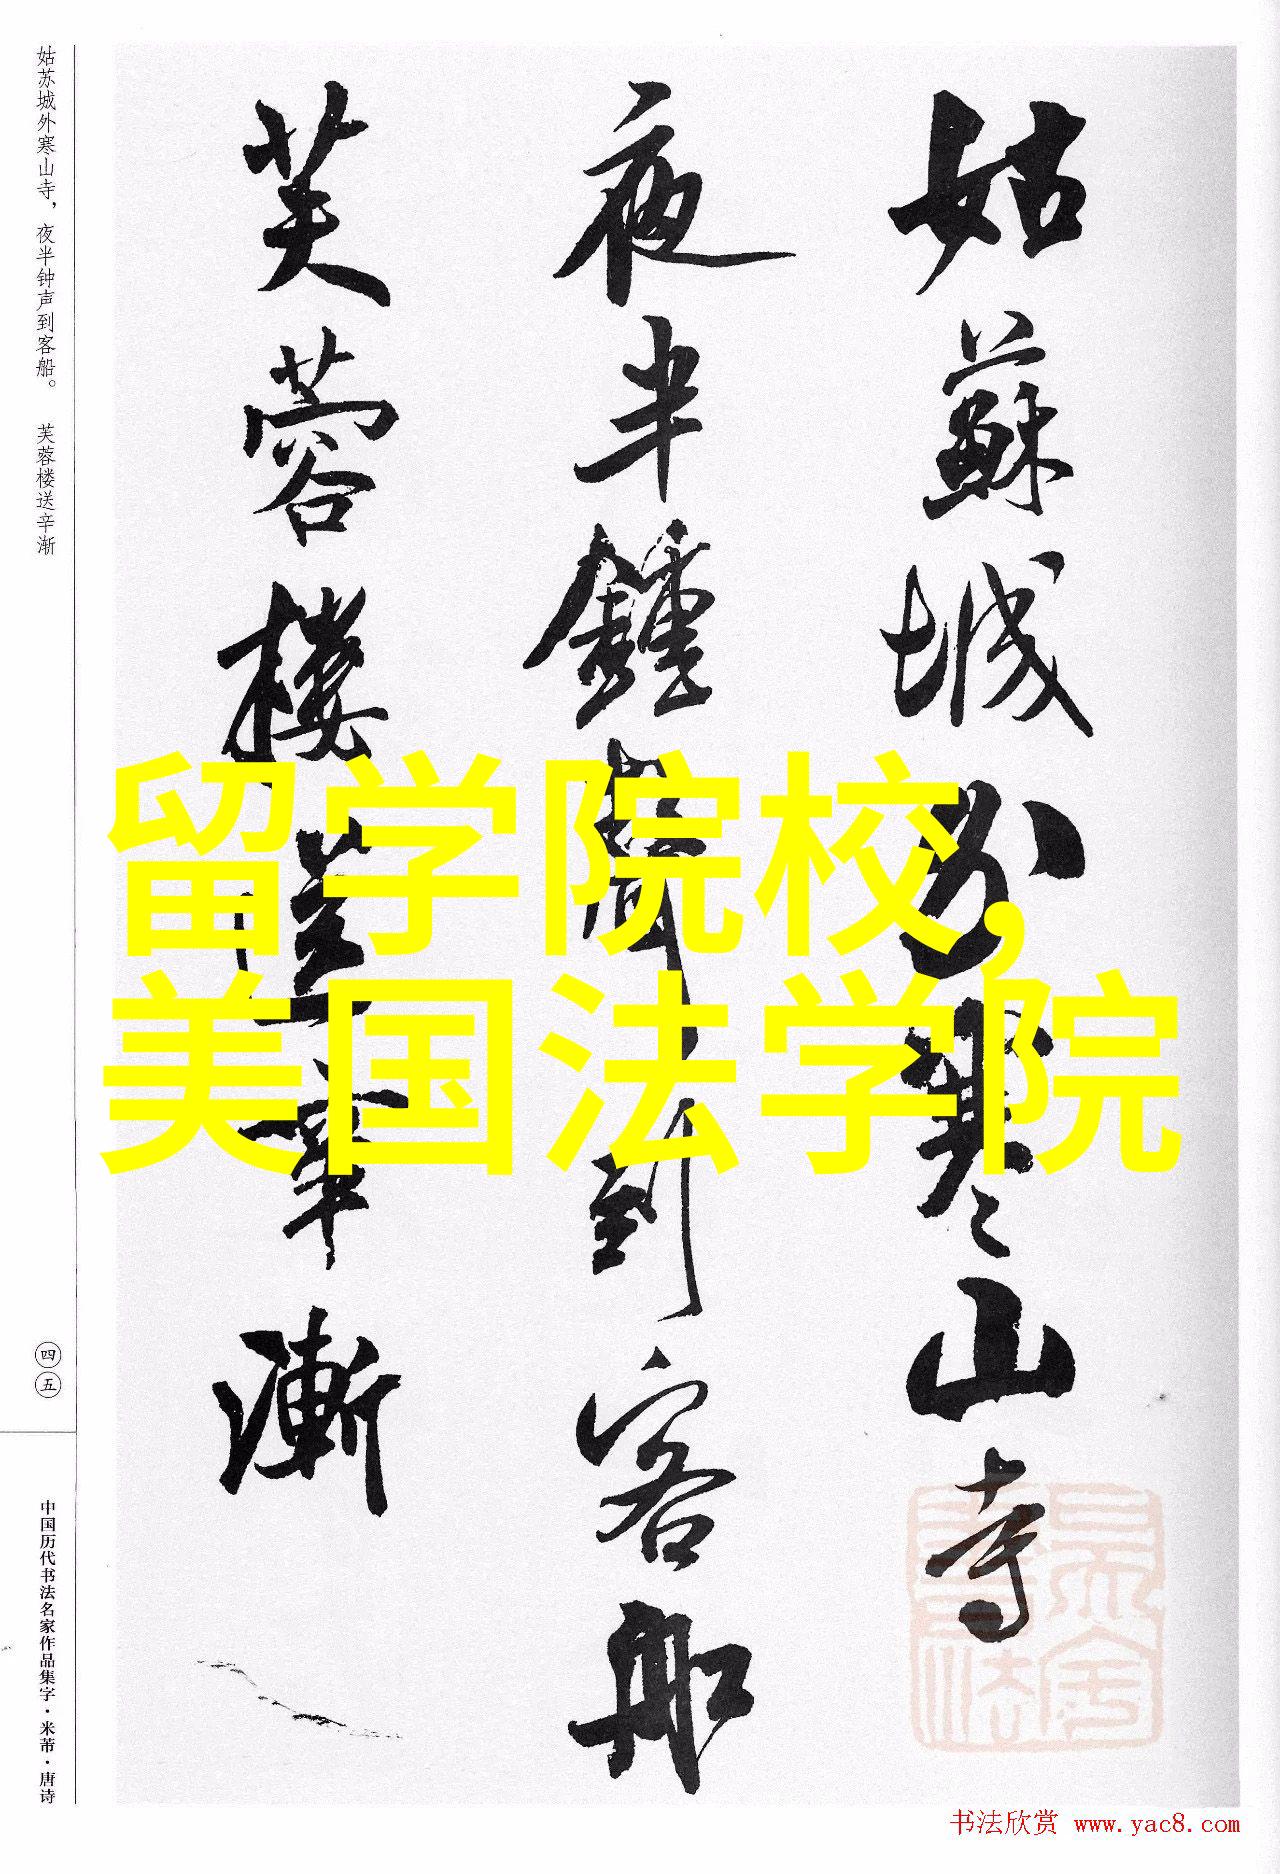 姑苏城外寒山寺，夜半钟声到客船。 芙蓉楼送辛渐
姑蘇城外寒山寺
夜半鍾聲到客船
芙蓉樓送辛漸
留学院校,
美国法学院
四五
中国历代书法名家作品集字·米芾·唐诗
书法欣赏 www.yac8.com